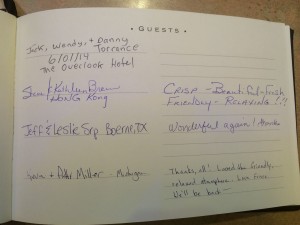 • GUESTS •
Jack, Wendy, + Danny
Torrance
6/01/14
The Overlook Hotel
Kathleen
Hong Kong
CRISP - Beautiful - Fresh
Friendly - Relaxing!!
Jeff & Leslie Boerne, TX
Wonderful again!
+ Miller - Michigan
Thanks, all! Loved the friendly,
relaxed atmosphere. Love
We'll be back -